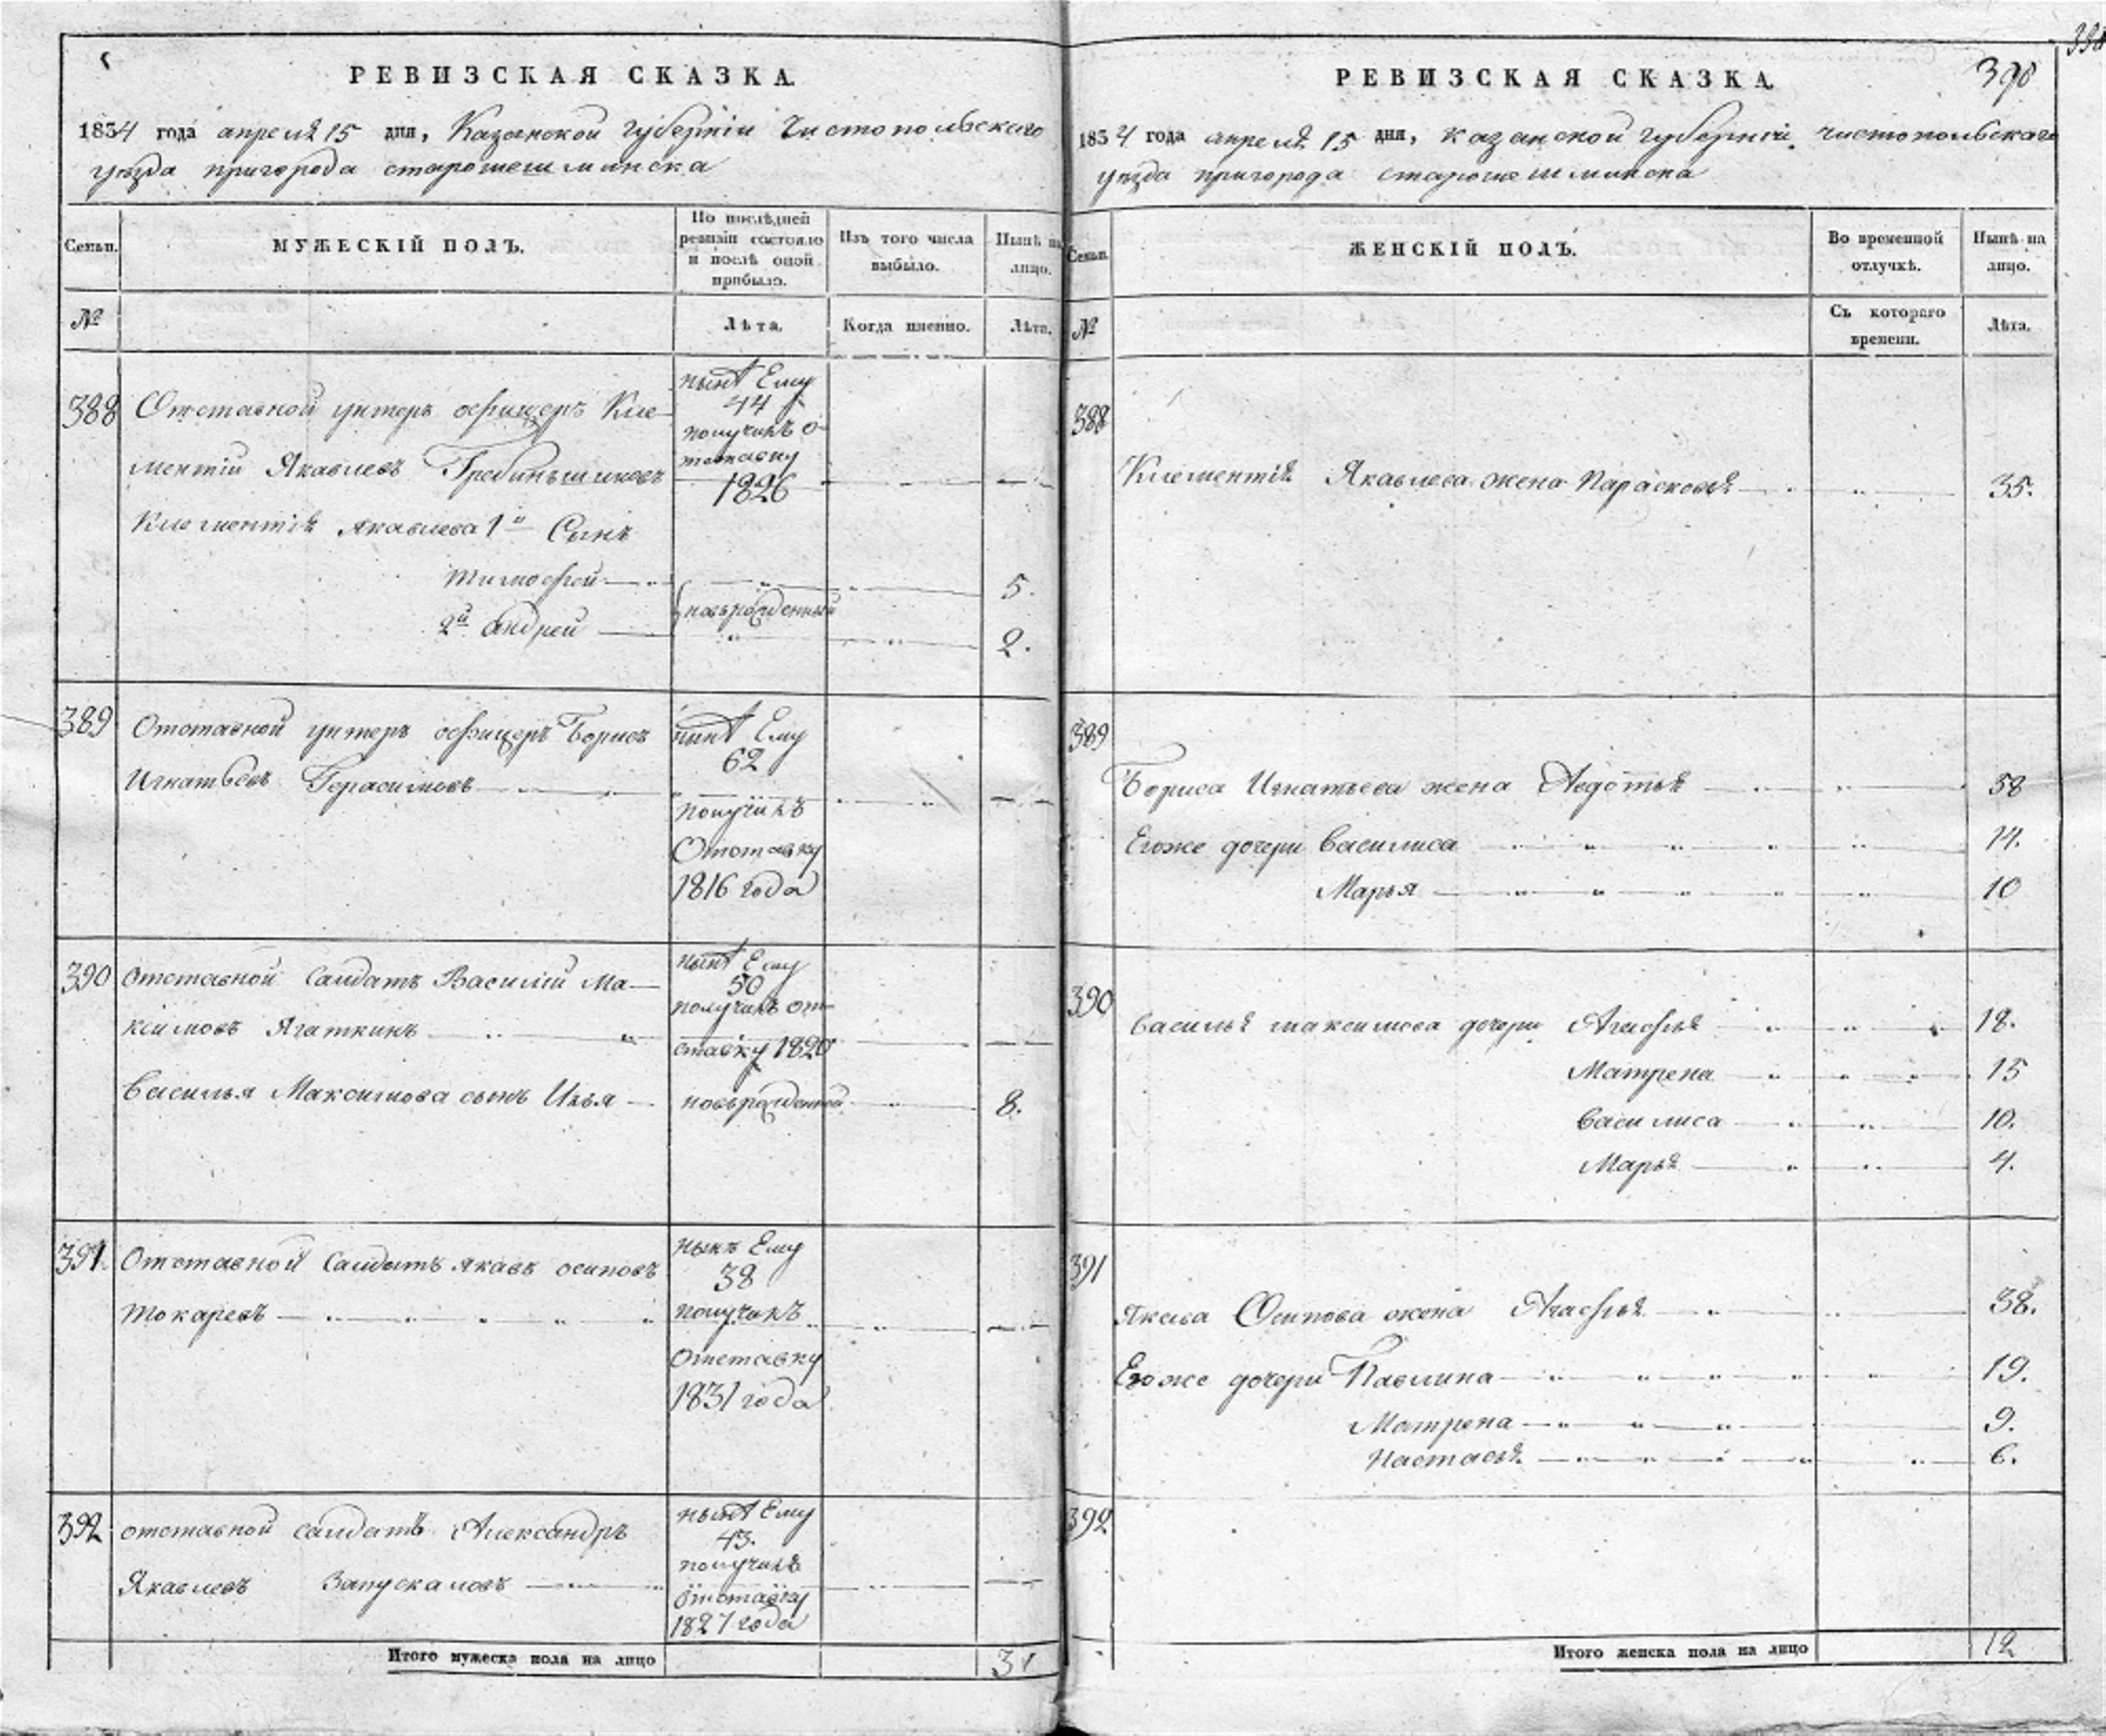 РЕВИЗСКАЯ СКАЗКА.
1834 года апреля 15 дня, Казанской губернии Чистопольскаго
уезда пригорода старошешминска
Семьи.
МУЖЕСКІЙ ПОЛЪ.
По послѣдней
ревизіи состояло
и послѣ оной
прибыло.
Изъ того числа
выбыло.
Нынѣ на
лицо.
№
Лѣта.
Когда имянно.
Лѣта.
388
Отставной унтеръ офицеръ Кле-
ментіи Якавлевъ Гребиньшиковъ
Клементія якавлева 1й Сынъ
тимофей
2й андрей
нынѣ Ему
44
получилъ о-
тставку
1826
новърожденныи
5.
2.
389
Отставной унтеръ офицеръ Борисъ
Игнатьевъ Герасимовъ
нынѣ Ему
62
получилъ
Отставку
1816 года
390
отставной Салдатъ Василіи Ма-
ксимовъ Ягаткинъ
Василья Максимова сынъ Илья
нынѣ Ему
50
получилъ от-
ставку 1820
новърожденной
8.
391
Отставной Салдатъ якавъ осиповъ
токаревъ
нынѣ Ему
38
получилъ
Отставку
1831 года
392
отставной салдатъ Александръ
Якавлевъ Запускаловъ
нынѣ Ему
43.
получилъ
отставку
1827 года
Итого мужеска пола на лицо
3
РЕВИЗСКАЯ СКАЗКА.
390
1834 года апреля 15 дня, казанской губерніи чистопольскаго
уезда пригорода старошешминска
Семьи.
ЖЕНСКІЙ ПОЛЪ.
Во временной
отлучкѣ.
Нынѣ на
лицо.
№
Съ котораго
времени.
Лѣта.
388
Клементія Якавлева жена Парасковья
35.
389
Бориса Игнатьева жена Авдотья
58
Егоже дочери Василиса
14.
Марья
10
390
Василья максимова дочери Агафья
18.
Матрена
15
Василиса
10.
Марья
4.
391
Якава Осипова жена Агафья
38.
Егоже дочери Павлина
19.
Матрена
9.
Настасья
6.
392
Итого женска пола на лицо
12